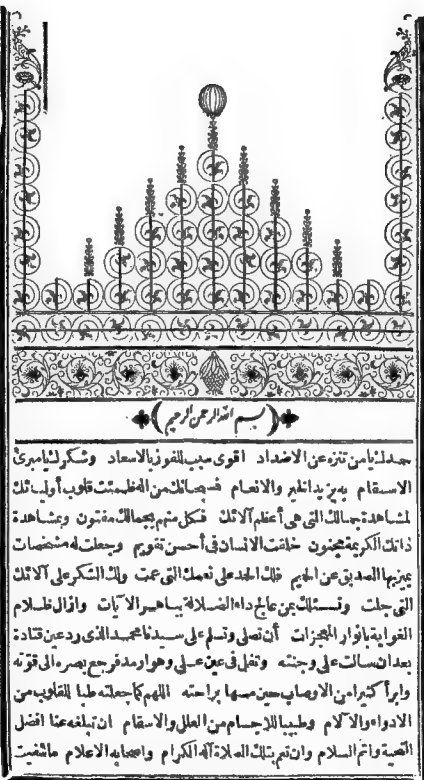 بسم الله الرحمن الرحيم
حمدك يا من تنزه عن الاضداد اقوى سبب للفوز بالاسعاد وشكرك يا مبرئ
الاسقام به يزيد الخير والانعام فسبحانك من اله ظمئت قلوب أوليائك
لمشاهدة جمالك التي هى أعظم آلائك فكل منهم بجمالك مفتون وبمشاهدة
ذاتك الكريمة مجنون خلقت الانسان فى أحسن تقويم وجعلت له مشخصات
يميز بها الصديق عن الحميم فلك الحمد على نعمك التى عمت ولك الشكر على آلائك
التى جلت ونسئلك يا من عالج داء الضلالة بباهر الآيات وازال ظلام
الغواية بانوار المعجزات أن تصلى وتسلم على سيدنا محمد الذى رد عين قتادة
بعد ان سالت على وجنته وتفل فى عين على وهو ارمد فرجع بصره الى قوته
وابرأ كثيرا من الاوصاب حين مسها براحته اللهم كما جعلته طبا للقلوب من
الادواء والآلام وطبيبا للاجسام من العلل والاسقام ان تبلغه عنا افضل
التحية واتم السلام وان تعم بتلك الصلاة آله الكرام واصحابه الاعلام ما شفيت